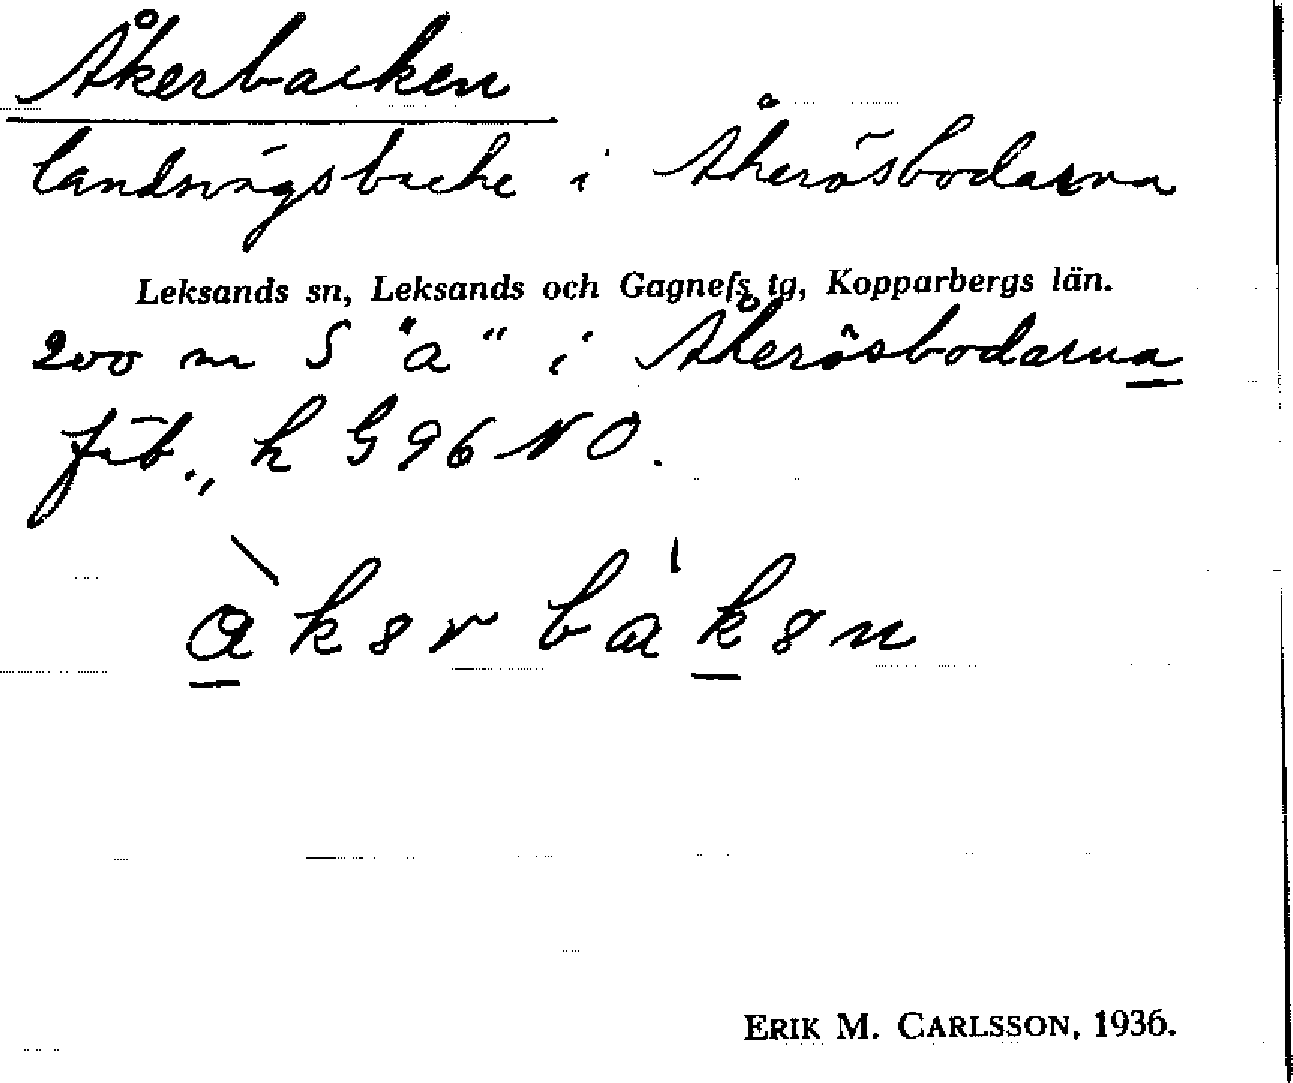 Åkerbacken
landsvägsbacke i Åkerösbodarna
Leksands sn, Leksands och Gagnefs tg, Kopparbergs län.
200 m S "a" i Åkerösbodarna
fäb., k G 96 NO.
åkər bakən
ERIK M. CARLSSON, 1936.